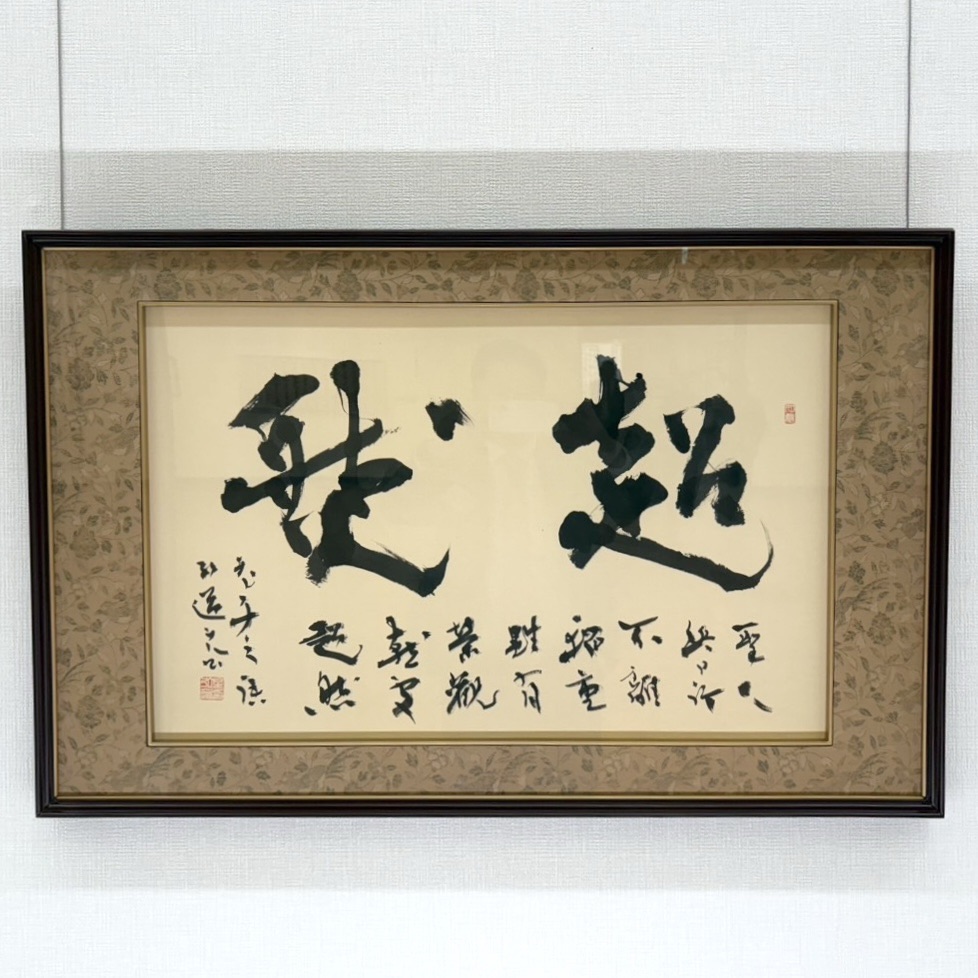 超然
聖人
終日行
不離
輜重
雖有
榮觀
燕處
超然
老子之語